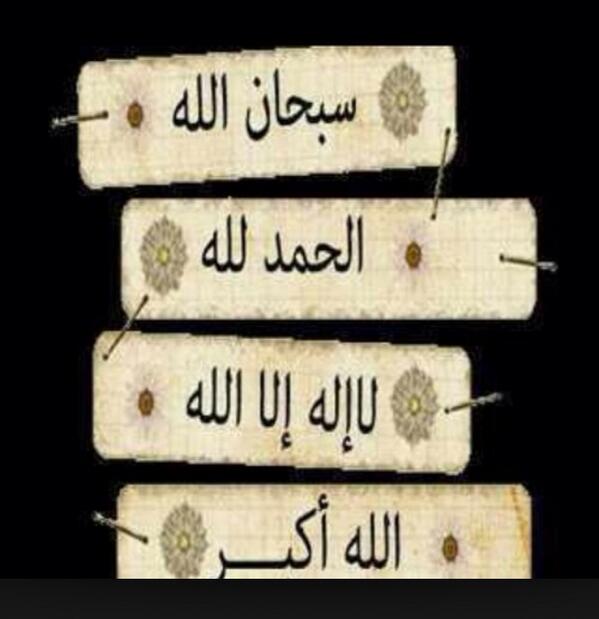 سبحان الله
الحمد لله
لاإله إلا الله
الله أكبـــر